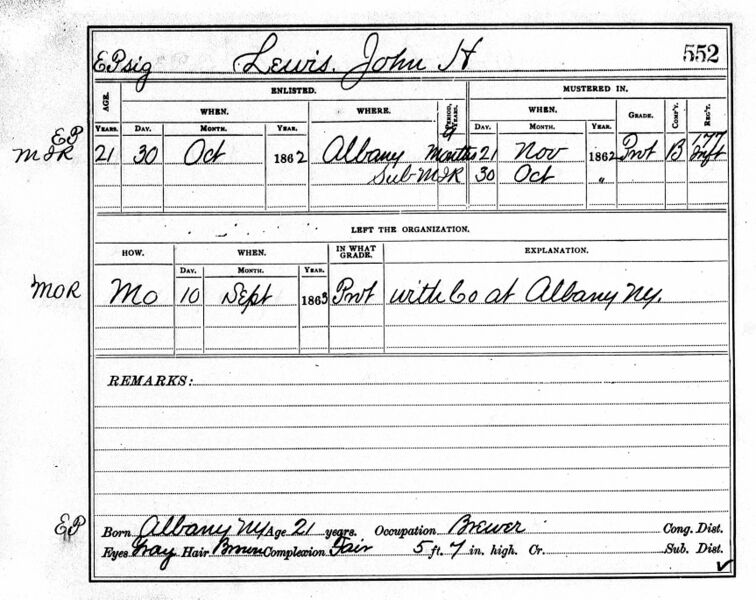 EPsig Lewis, John H 552
ENLISTED. MUSTERED IN.
AGE. WHEN. WHERE. PERIOD, YEARS. WHEN. GRADE. COMP'Y. REG'T.
YEARS. DAY. MONTH. YEAR. DAY. MONTH. YEAR.
EP
MIR 21 30 Oct 1862 Albany 9 Months 21 Nov 1862 Pvt B 177 Inft
Sub-MIR 30 Oct "
LEFT THE ORGANIZATION.
HOW. WHEN. IN WHAT GRADE. EXPLANATION.
DAY. MONTH. YEAR.
MOR Mo 10 Sept 1863 Pvt with Co at Albany NY.
REMARKS:
EP Born Albany NY Age 21 years. Occupation Brewer Cong. Dist.
Eyes Gray Hair Brown Complexion Fair 5 ft. 7 in. high. Cr. Sub. Dist.